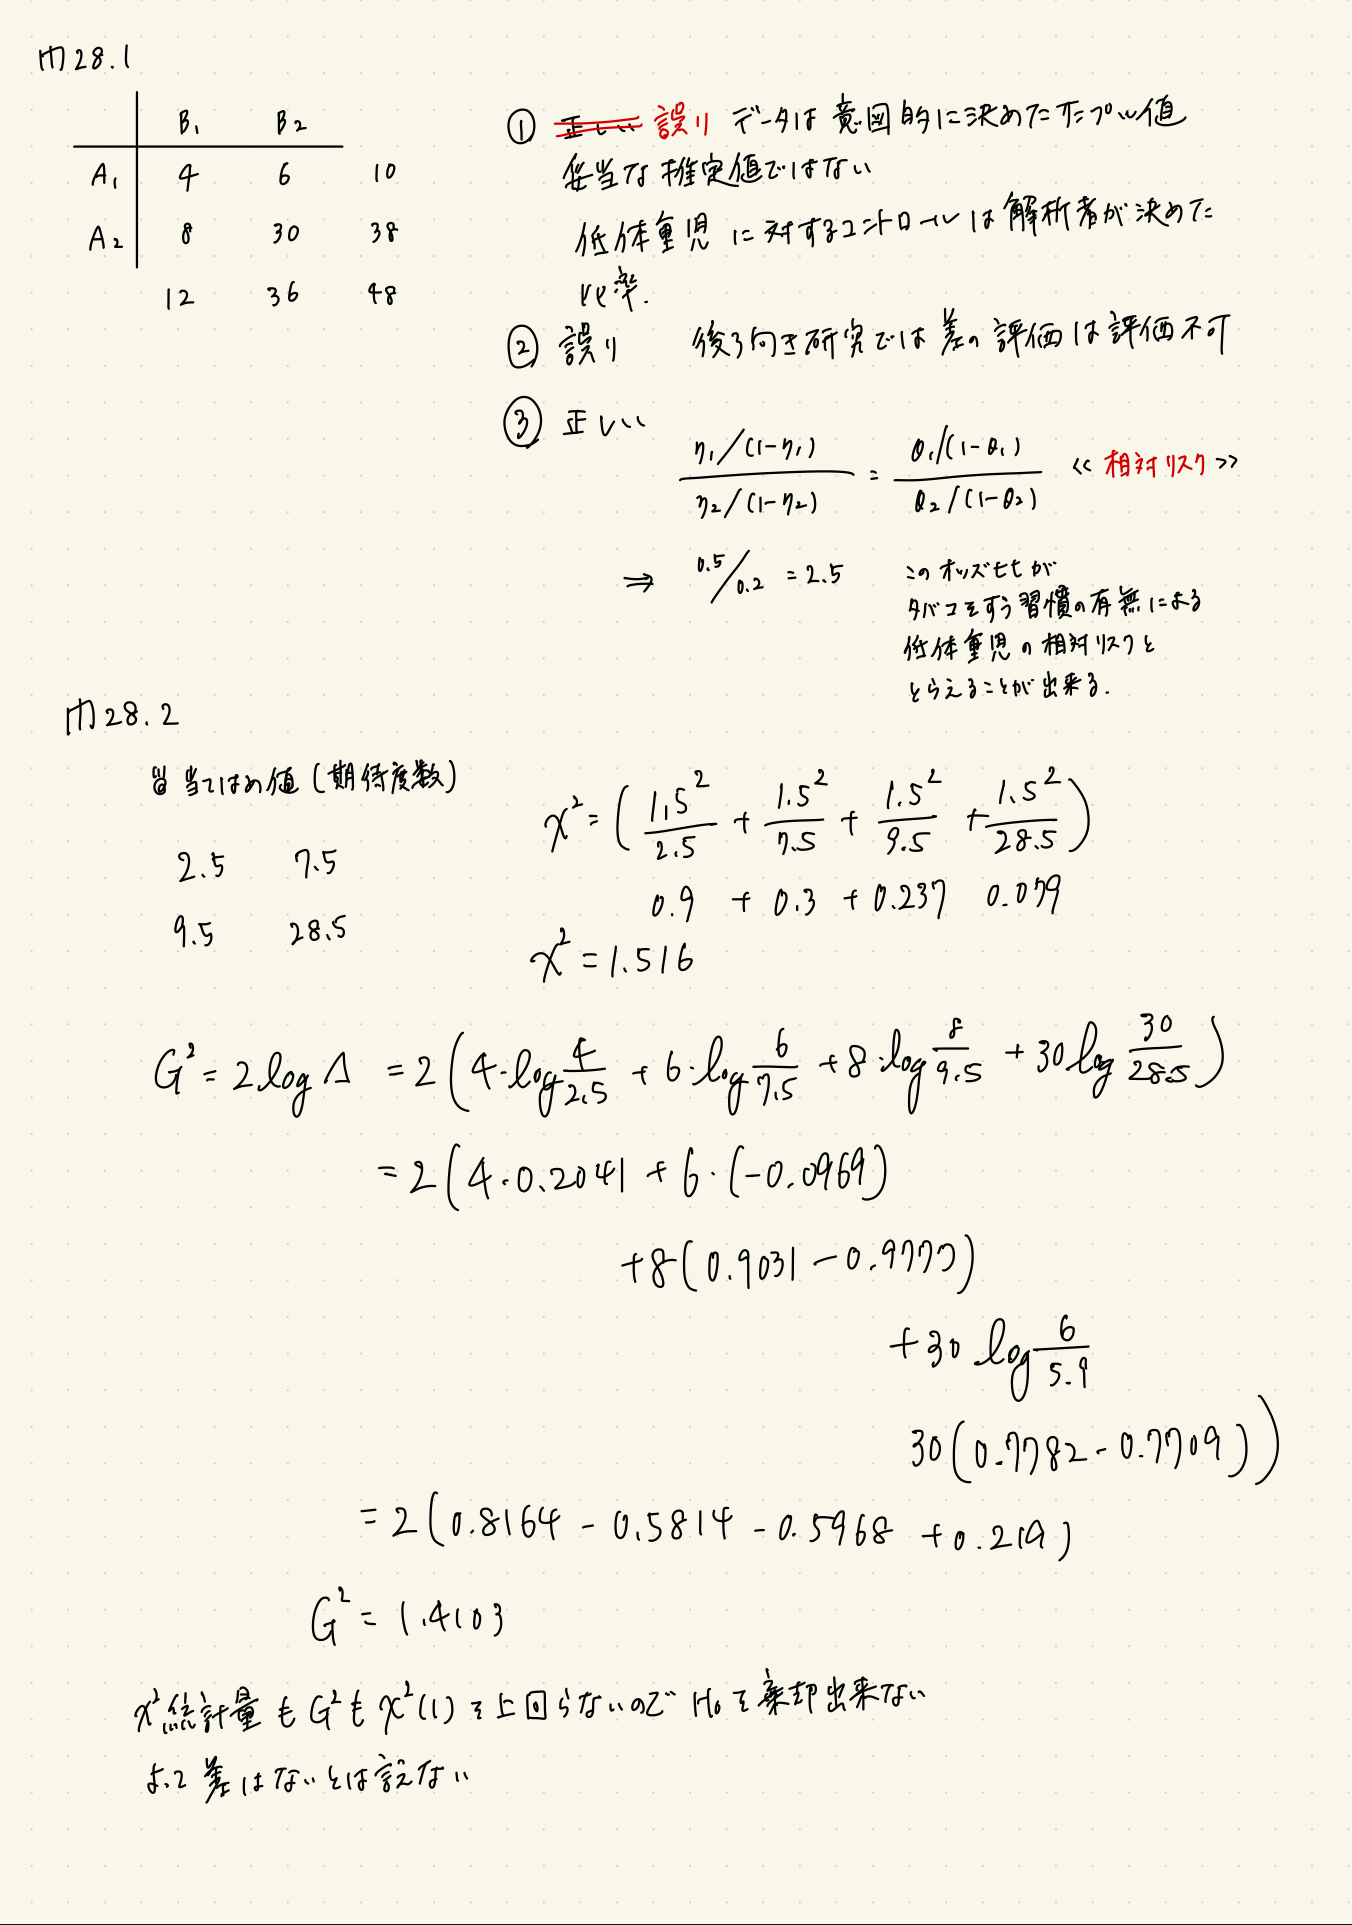 問28.1
B1 B2
A1 4 6 10
A2 8 30 38
12 36 48
① 正しい 誤り データは意図的に決めたサンプル値
妥当な推定値ではない
低体重児に対するコントロールは解析者が決めた
比率.
② 誤り 後ろ向き研究では差の評価は評価不可
③ 正しい
η1/(1-η1) / η2/(1-η2) = θ1/(1-θ1) / θ2/(1-θ2) << 相対リスク >>
⇒ 0.5/0.2 = 2.5
このオッズ比が
タバコをすう習慣の有無による
低体重児の相対リスクと
とらえることが出来る.
問28.2
当てはめ値(期待度数)
2.5 7.5
9.5 28.5
χ² = (1.5²/2.5 + 1.5²/7.5 + 1.5²/9.5 + 1.5²/28.5)
0.9 + 0.3 + 0.237 0.079
χ² = 1.516
G² = 2 log Λ = 2(4·log 4/2.5 + 6·log 6/7.5 + 8·log 8/9.5 + 30 log 30/28.5)
= 2(4·0.2041 + 6·(-0.0969)
+8(0.9031 - 0.9777)
+30 log 6/5.9
30(0.7782 - 0.7709))
= 2(0.8164 - 0.5814 - 0.5968 + 0.219)
G² = 1.4103
χ²統計量もG²もχ²(1)を上回らないのでH0を棄却出来ない
よって差はないとは言えない